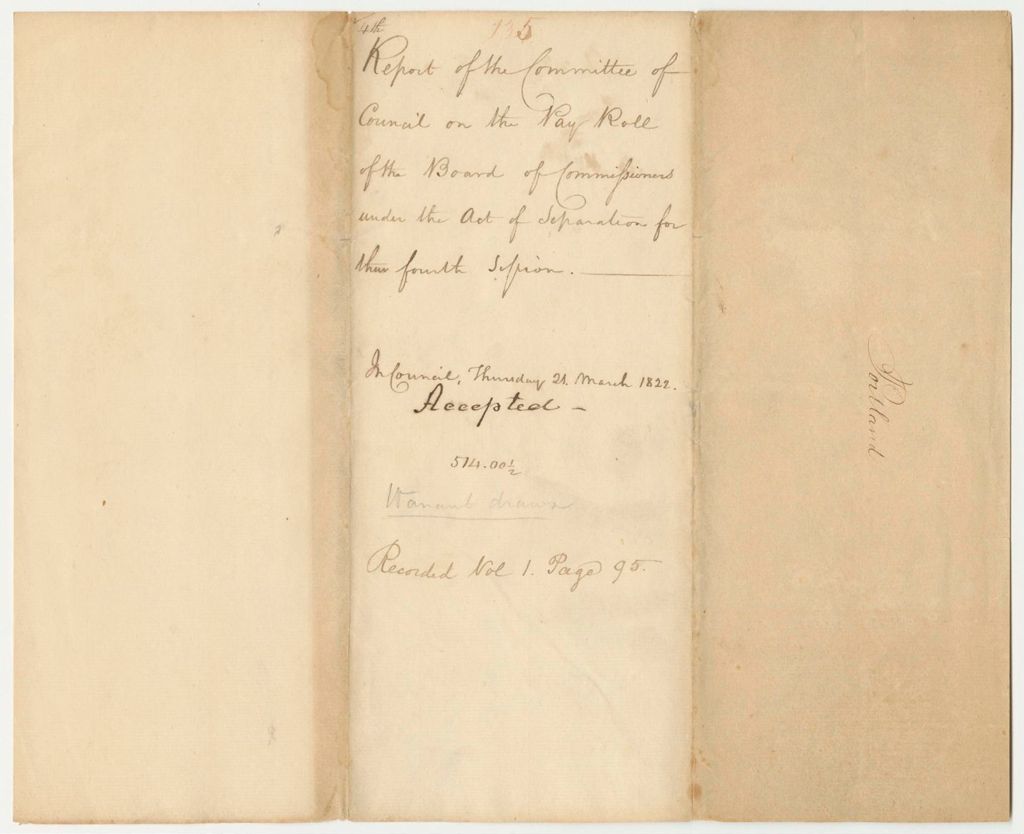 4th
135
Report of the Committee of
Council on the Pay Roll
of the Board of Commissioners
under the Act of Separation for
their fourth Session.
In Council, Thursday 21. March 1822.
Accepted -
514.00½
Warrant drawn
Recorded Vol 1. Page 95.
Portland